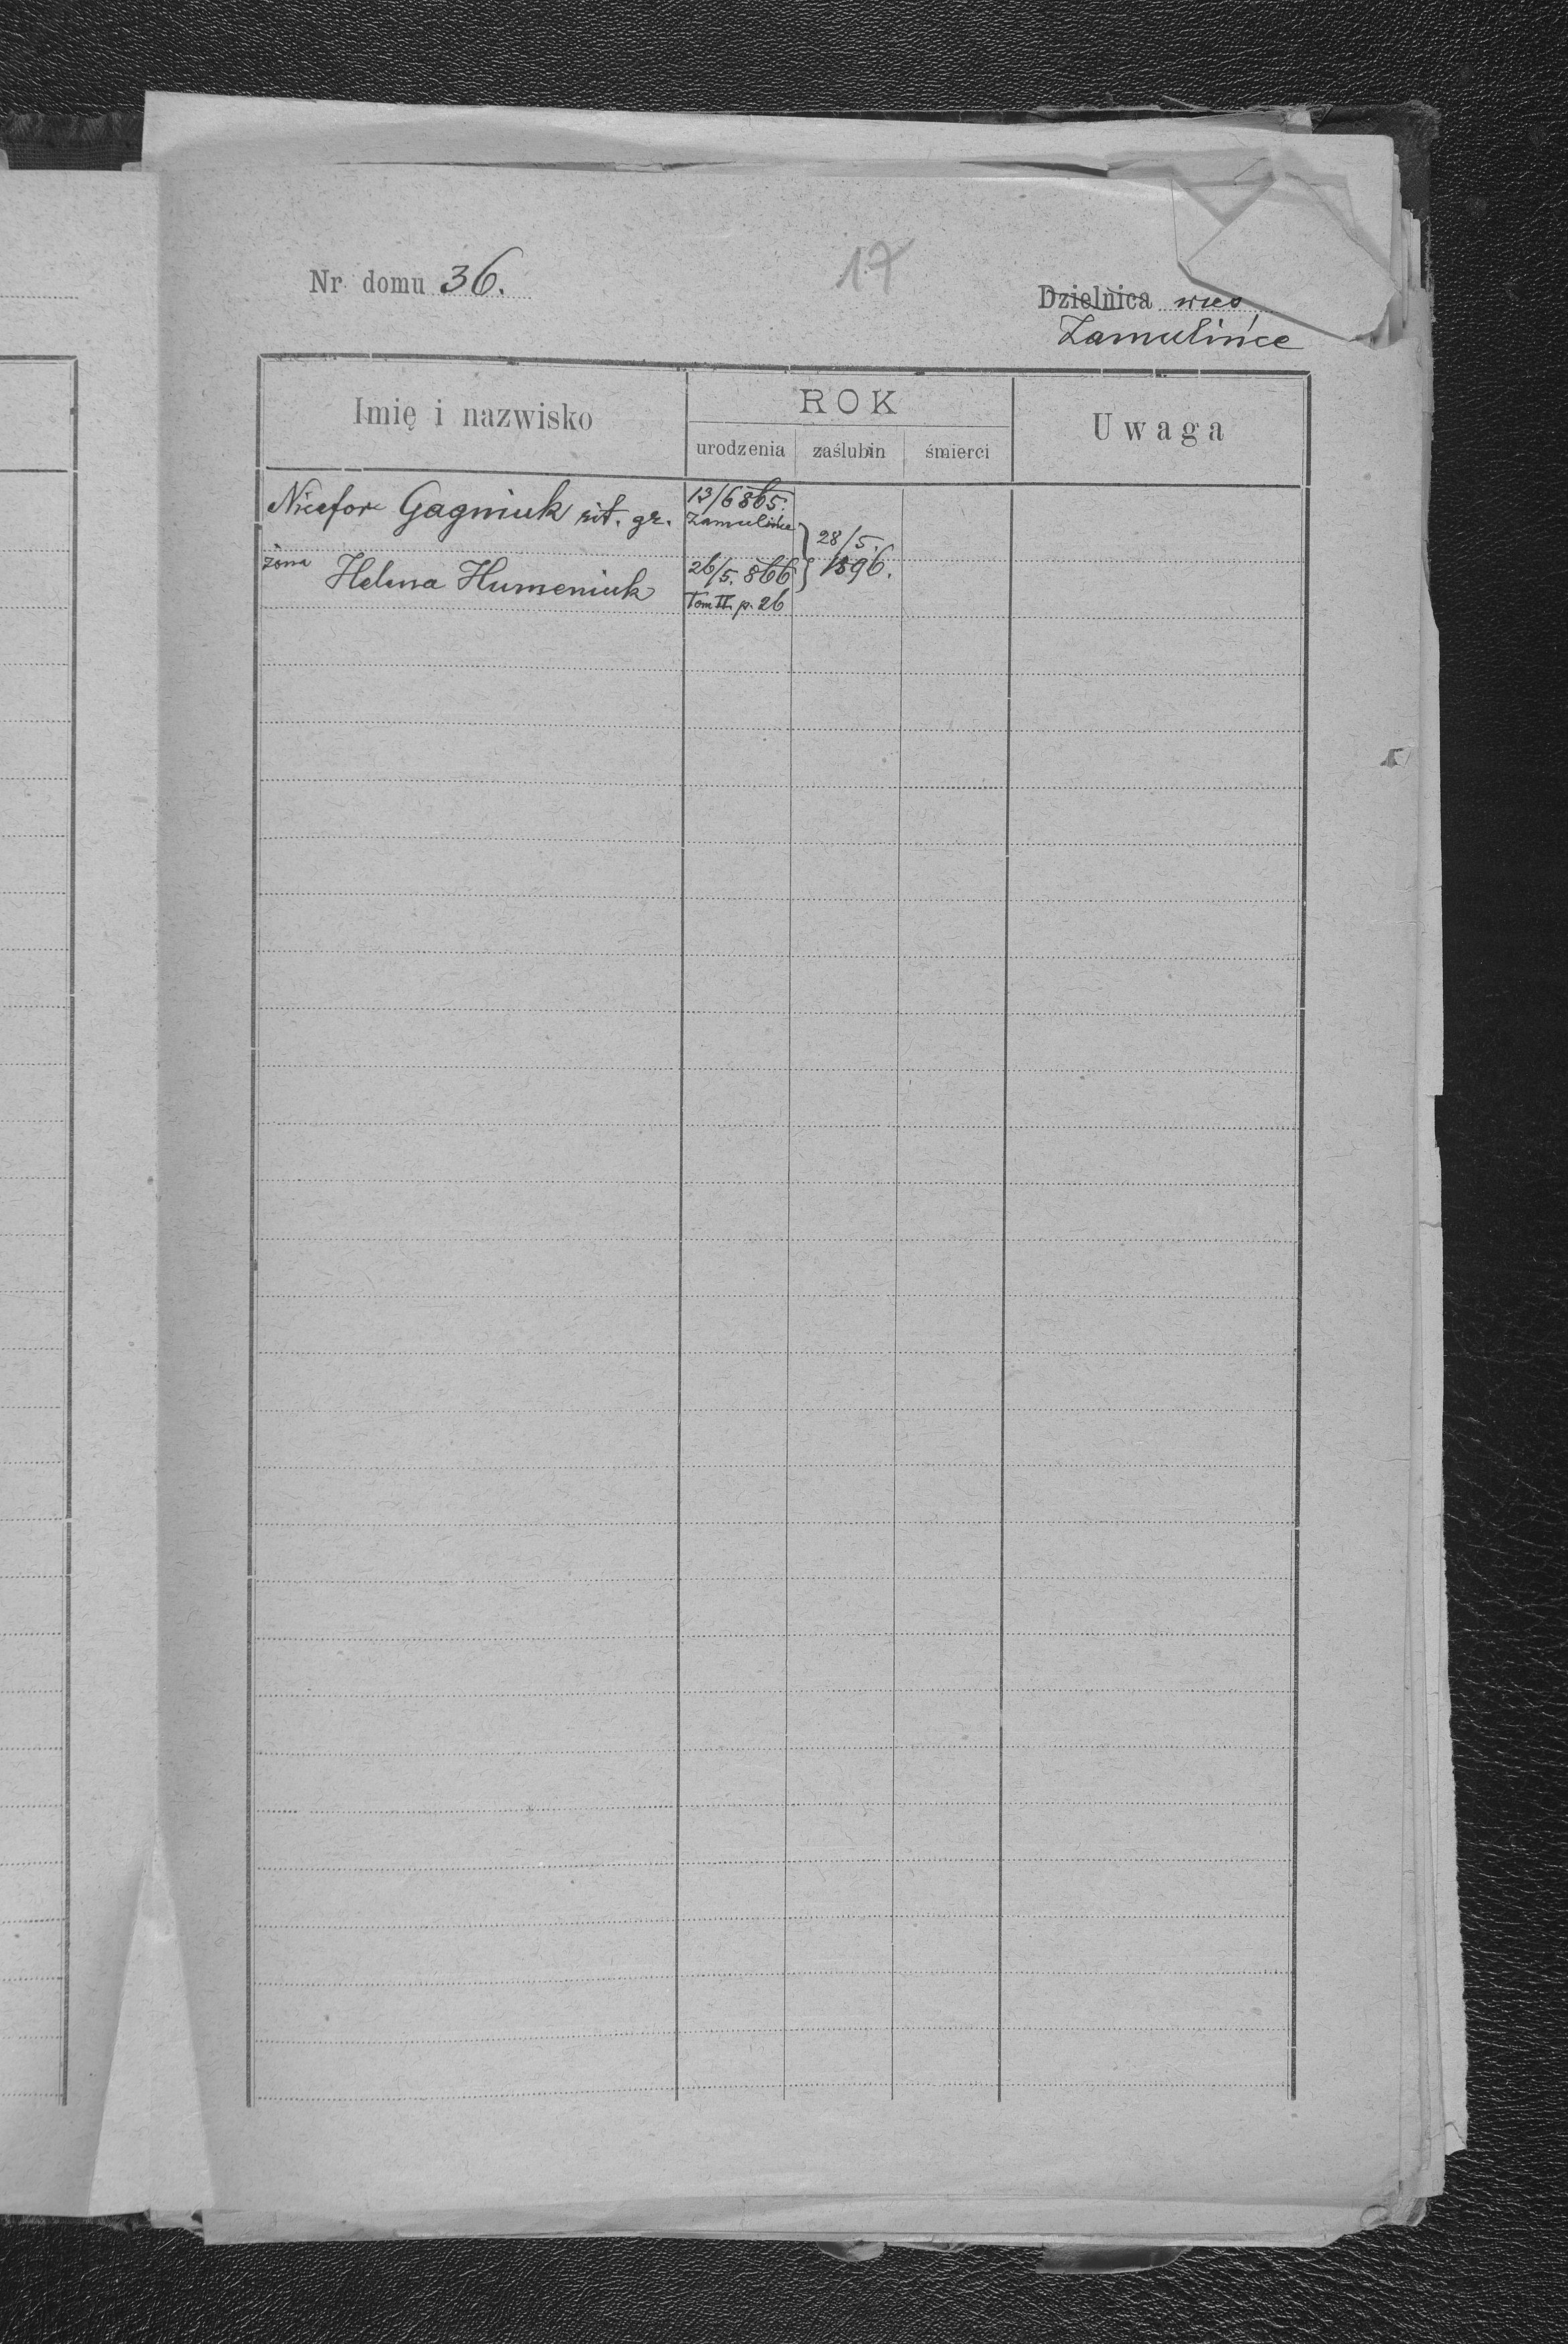 17
Nr domu 36.
Dzielnica wieś
Zamulińce
Imię i nazwisko
ROK
Uwaga
urodzenia zaślubin śmierci
Nicefor Gagniuk rit. gr. 13/6 865.
Zamulińce
28/5.
żona Helena Humeniuk 26/5. 866 1896.
Tom II. p. 26